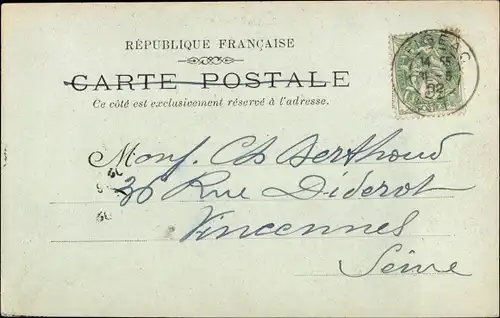 RÉPUBLIQUE FRANÇAISE
CARTE POSTALE
Ce côté est exclusivement réservé à l'adresse.
Monsr. Ch Berthoud
36 Rue Diderot
Vincennes
Seine